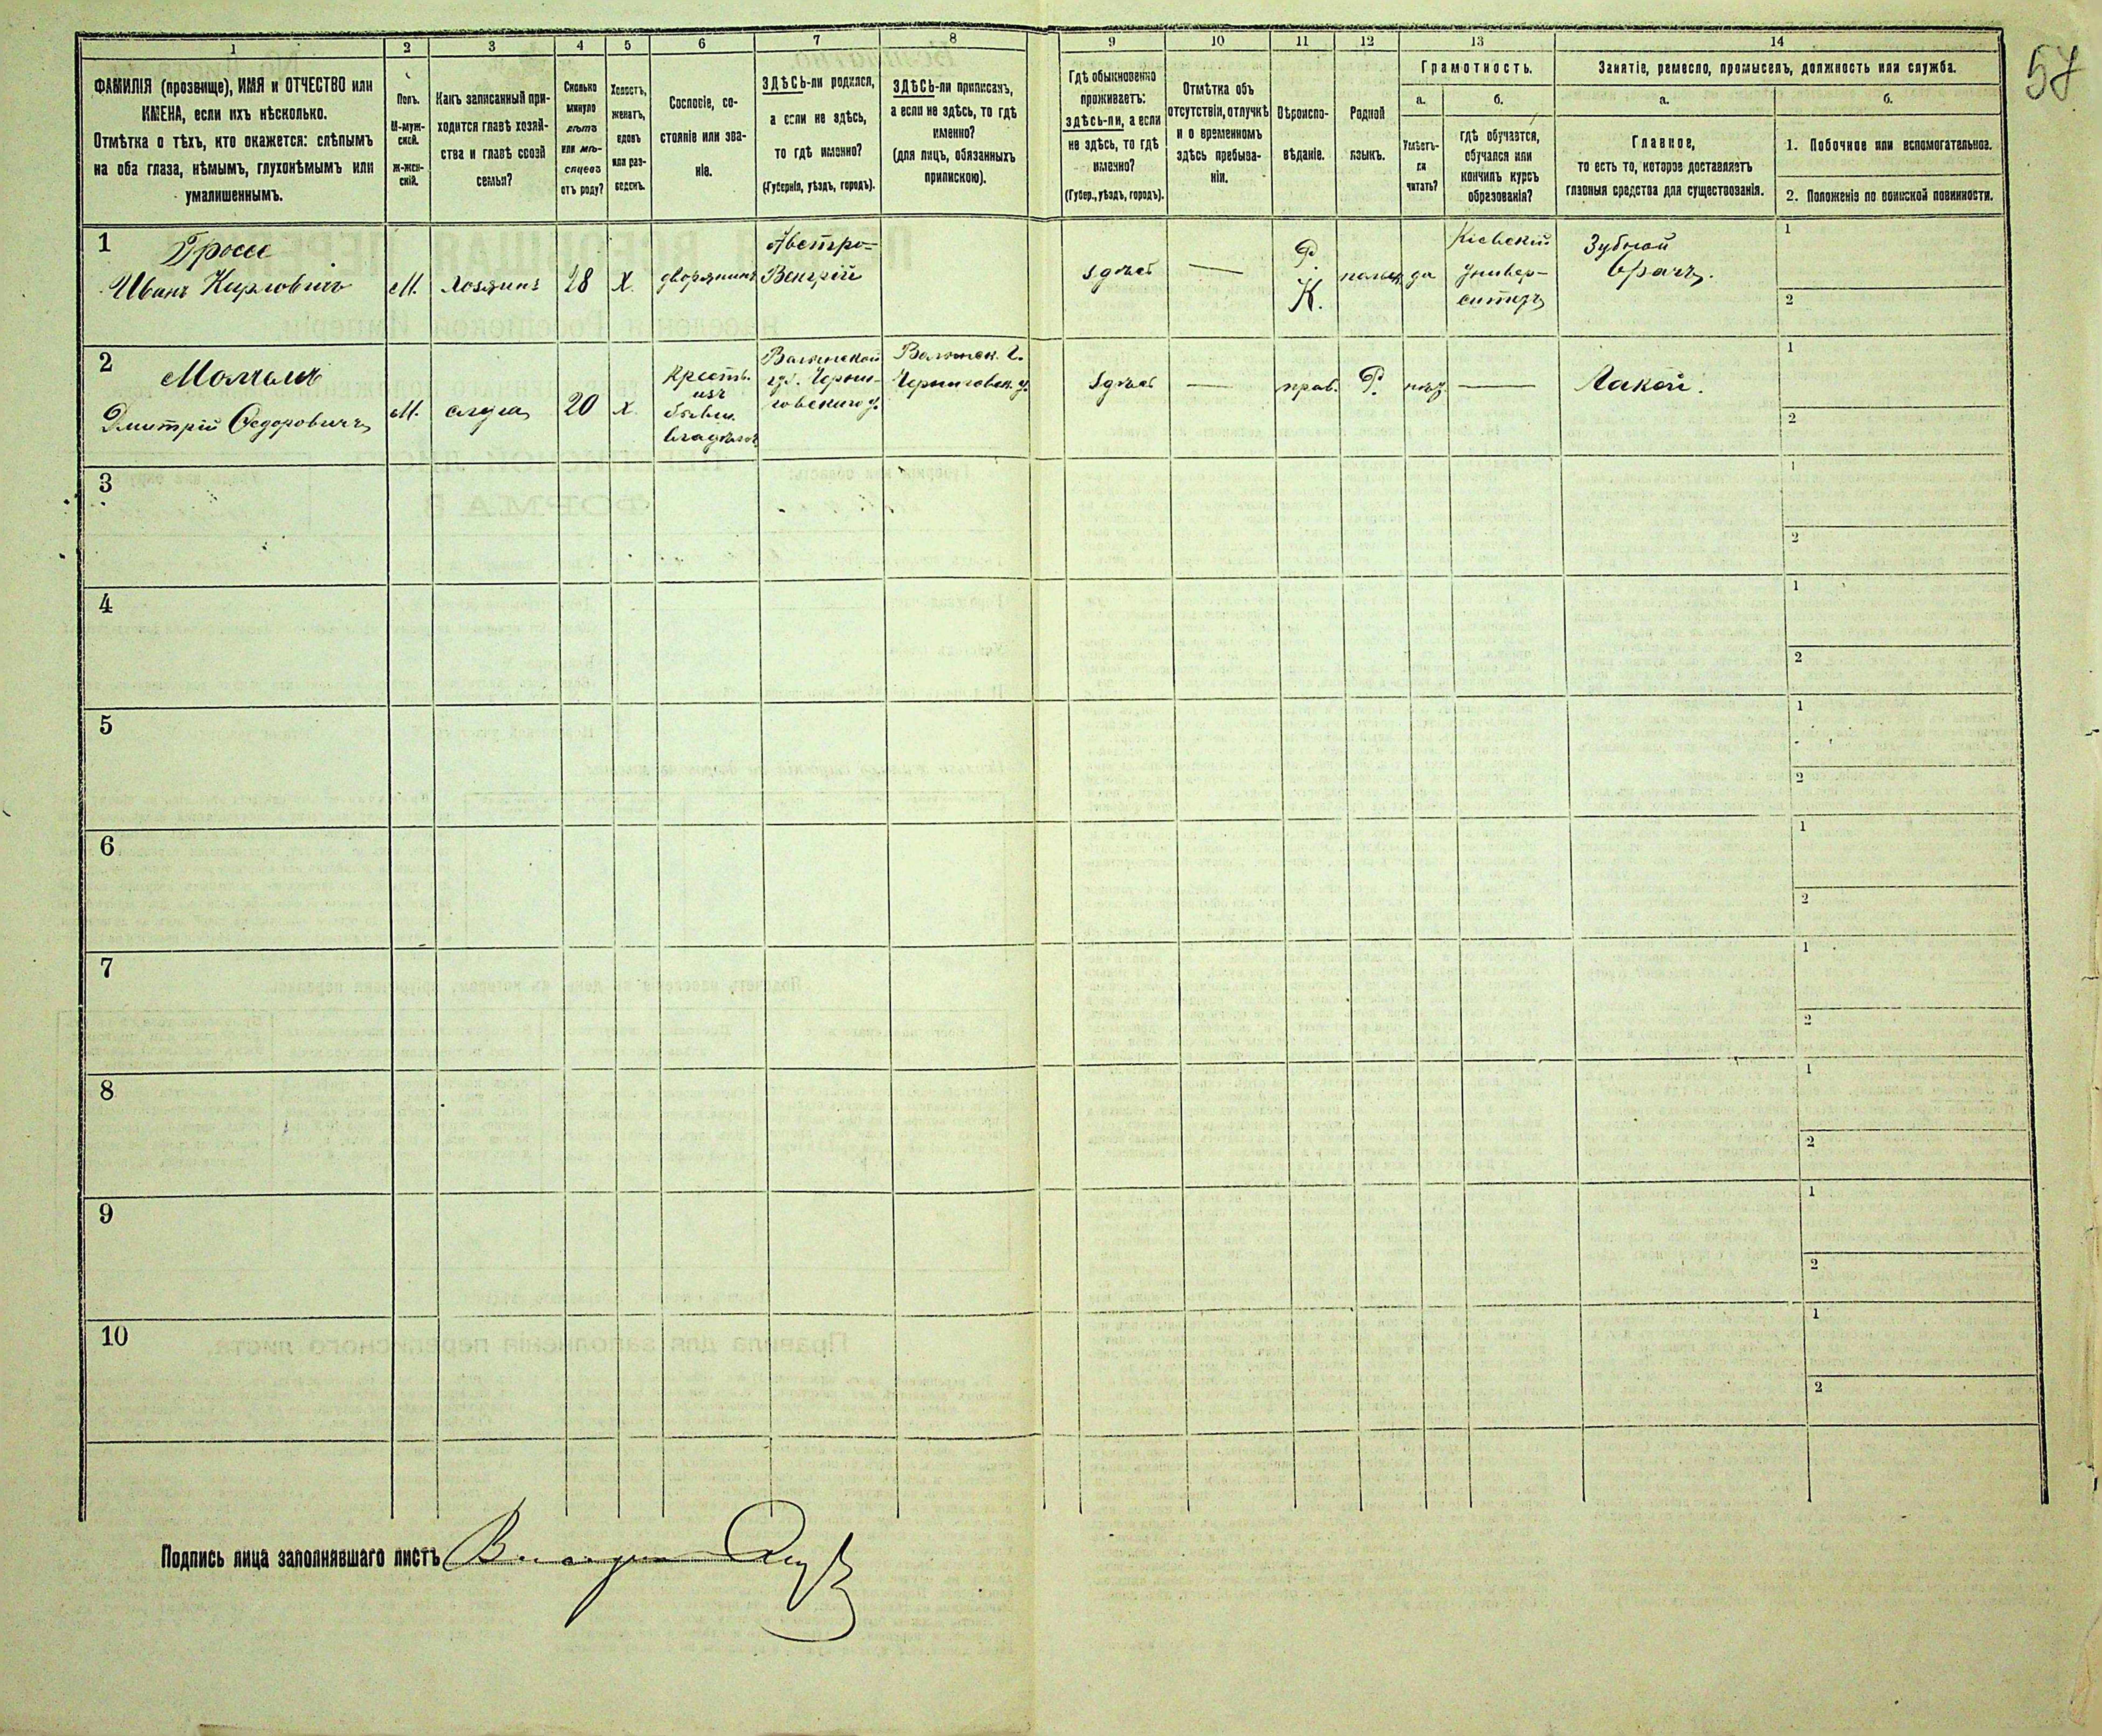 57
1 2 3 4 5 6 7 8 9 10 11 12 13 14
ФАМИЛІЯ (прозвище), ИМЯ и ОТЧЕСТВО или
ИМЕНА, если ихъ нѣсколько.
Отмѣтка о тѣхъ, кто окажется: слѣпымъ
на оба глаза, нѣмымъ, глухонѣмымъ или
умалишеннымъ.
Полъ.
М-муж-
ской.
Ж-жен-
скій.
Какъ записанный при-
ходится главѣ хозяй-
ства и главѣ своей
семьи?
Сколько
минуло
лѣтъ
или мѣ-
сяцевъ
отъ роду?
Холостъ,
женатъ,
вдовъ
или раз-
веденъ.
Сословіе, со-
стояніе или зва-
ніе.
ЗДѢСЬ-ли родился,
а если не здѣсь,
то гдѣ именно?
(Губернія, уѣздъ, городъ).
ЗДѢСЬ-ли приписанъ,
а если не здѣсь, то гдѣ
именно?
(для лицъ, обязанныхъ
припискою).
Гдѣ обыкновенно
проживаетъ:
здѣсь-ли, а если
не здѣсь, то гдѣ
именно?
(Губер., уѣздъ, городъ).
Отмѣтка объ
отсутствіи, отлучкѣ
и о временномъ
здѣсь пребыва-
ніи.
Вѣроиспо-
вѣданіе.
Родной
языкъ.
Грамотность.
а.
Умѣетъ-
ли
читать?
б.
гдѣ обучается,
обучался или
кончилъ курсъ
образованія?
Занятіе, ремесло, промыселъ, должность или служба.
а.
Главное,
то есть то, которое доставляетъ
главныя средства для существованія.
б.
1. Побочное или вспомогательное.
2. Положеніе по воинской повинности.
1
Гроссе
Иванъ Карловичъ
М.
хозяинъ
28
х.
дворянинъ
Австро-
Венгріи
здѣсь
—
Р.
К.
польск
да
Кіевскій
Универ-
ситетъ
Зубной
врачъ.
1
2
2
Дмитрій Федоровичъ
М.
слуга
20
х.
Крестьян.
изъ
бывш.
владѣльч.
Волынской
губ. Черни-
говскаго у.
Волынск. г.
Черниговск. у.
здѣсь
—
прав.
Р.
нѣтъ
—
Лакей.
1
2
3
1
2
4
1
2
5
1
2
6
1
2
7
1
2
8
1
2
9
1
2
10
1
2
Подпись лица заполнявшаго листъ